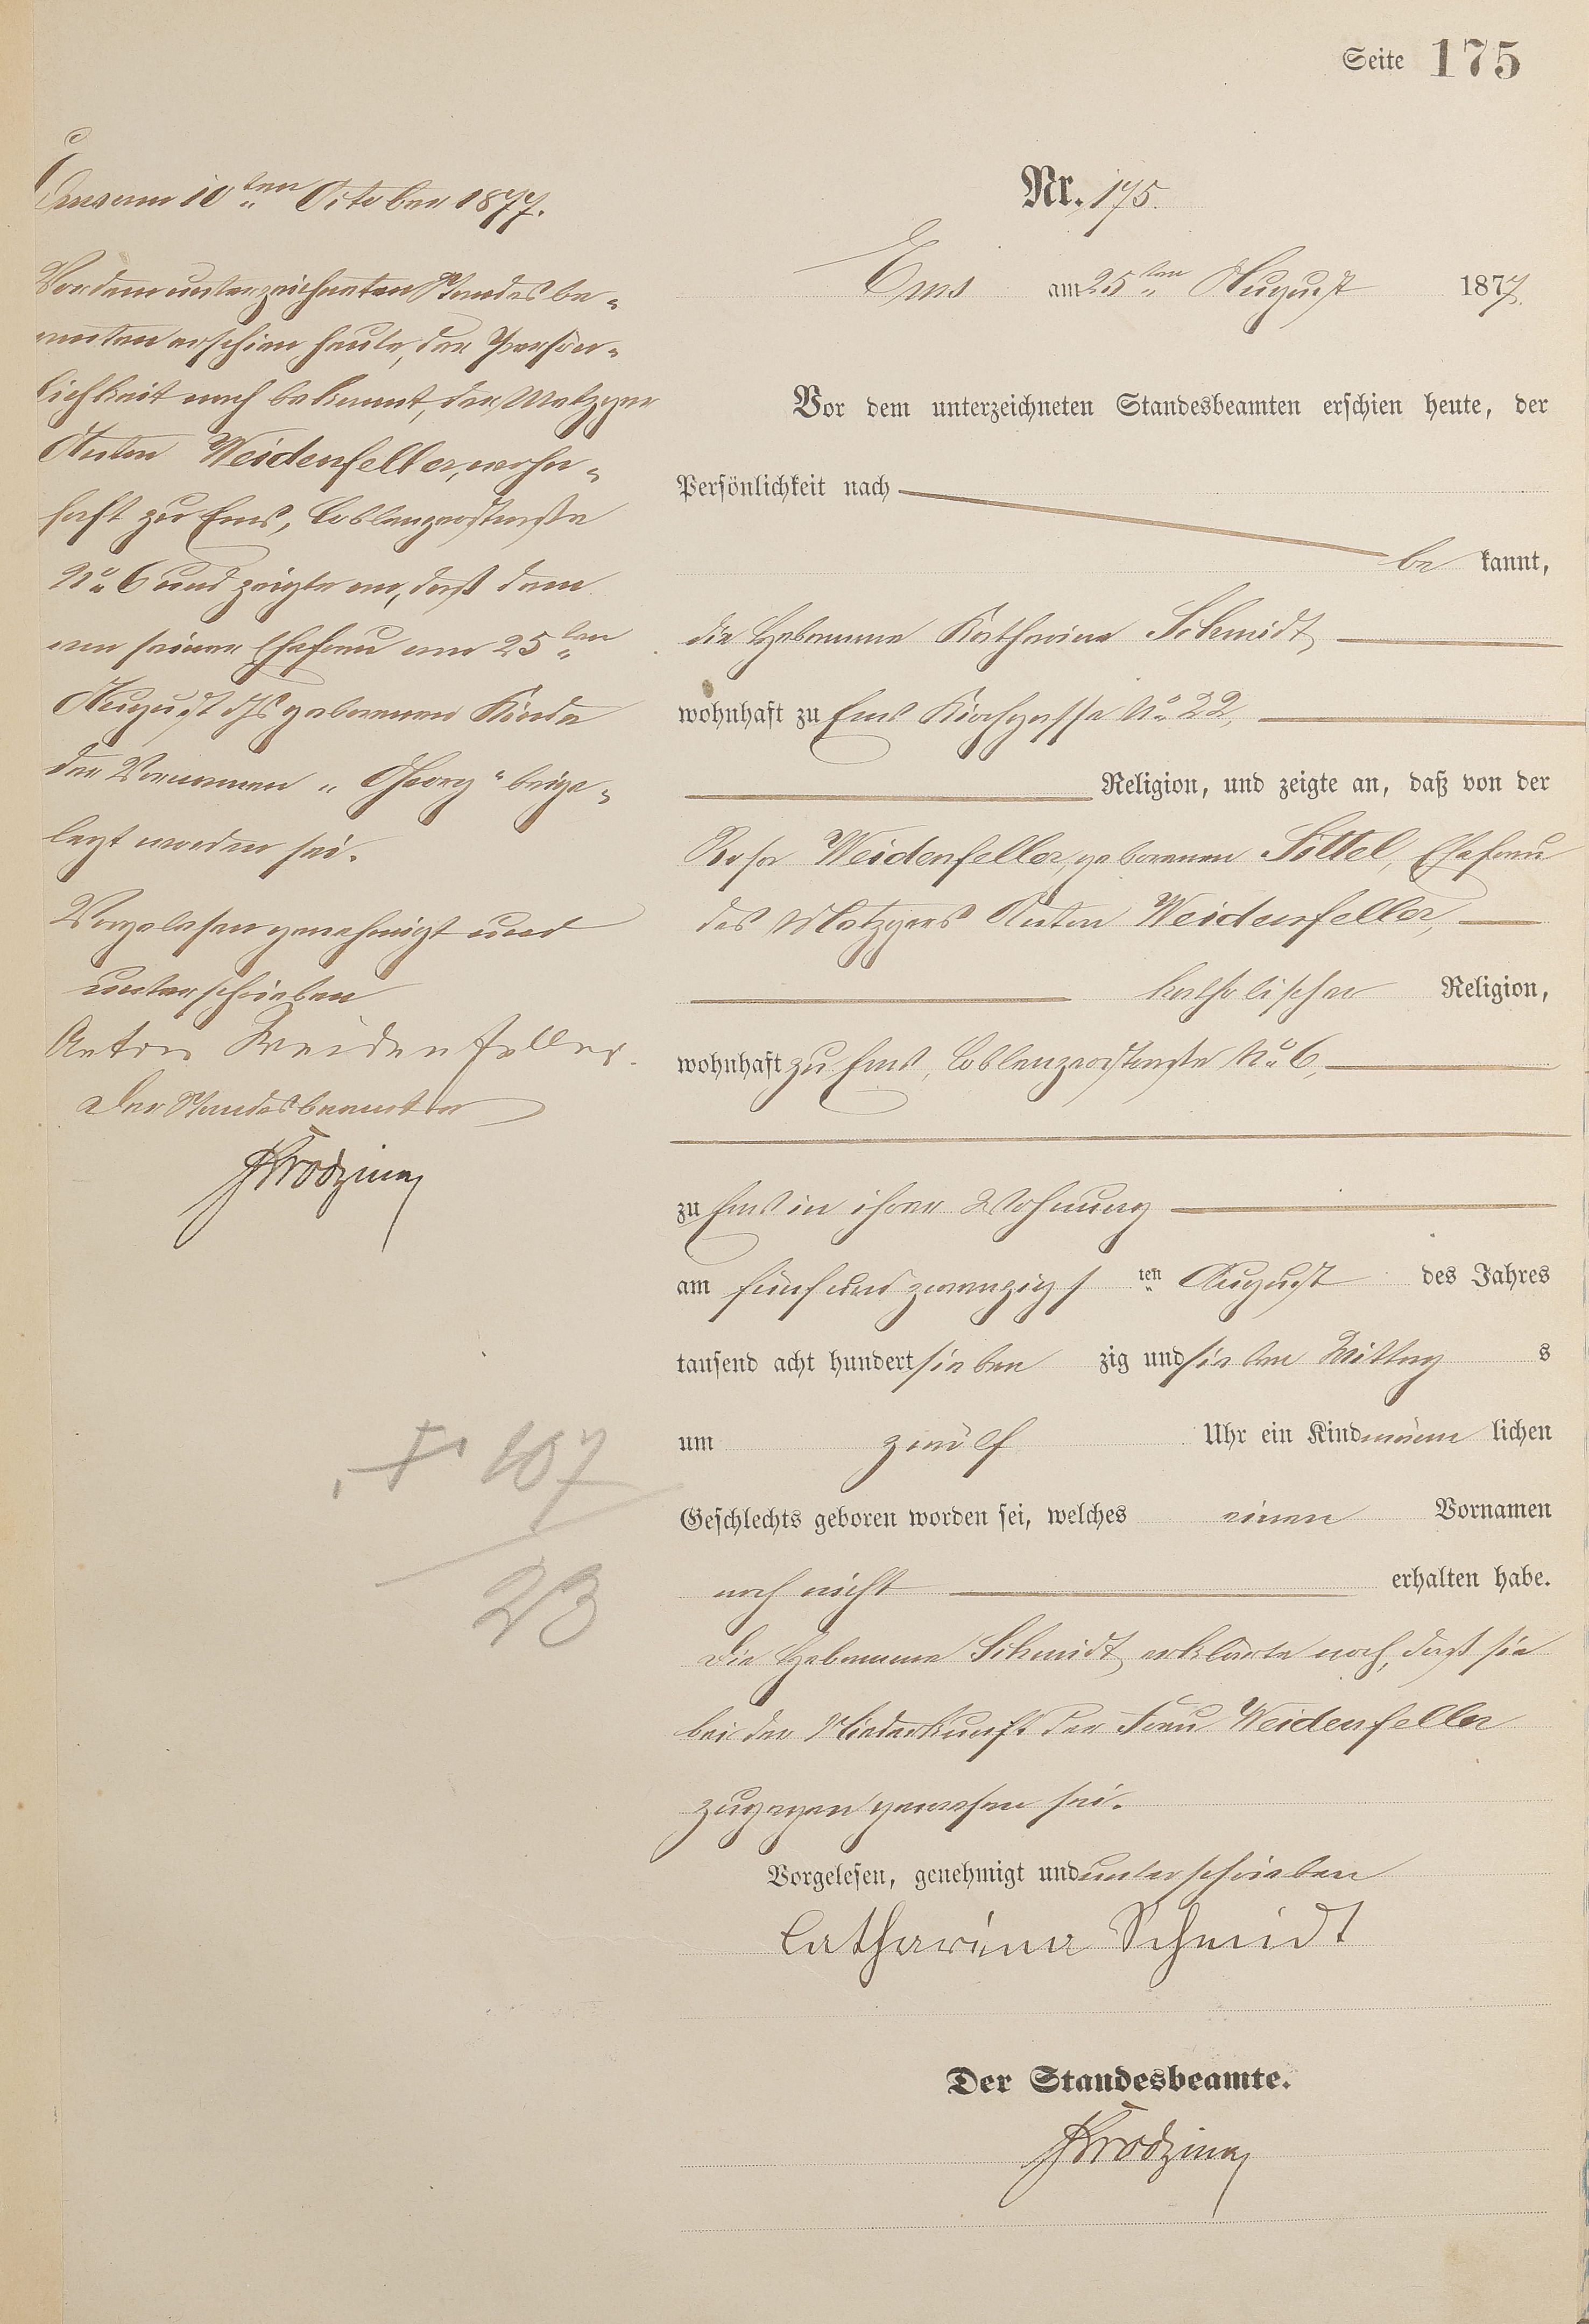 Seite 175
Ems am 10ten October 1877.
Vor dem unterzeichneten Standesbe-
amten erschien heute, der Persön-
lichkeit nach bekannt, der Metzger
Anton Weidenfeller, wohn-
haft zu Ems, Coblenzerstraße
No 6 und zeigte an, daß dem
von seiner Ehefrau am 25ten
August d. Js geborenen Kinde
der Vornamen „Georg" beige-
legt worden sei.
Vorgelesen genehmigt und
unterschrieben
Anton Weidenfeller.
Der Standesbeamte
+ 107
23
Nr. 175.
Ems am 25ten August 1877.
Vor dem unterzeichneten Standesbeamten erschien heute, der
Persönlichkeit nach
be kannt,
die Hebamme Katharina Schmidt
wohnhaft zu Ems Kirchgasse No 22,
Religion, und zeigte an, daß von der
Rosa Weidenfeller, geborenen Sittel, Ehefrau
des Metzgers Anton Weidenfeller,
katholischer Religion,
wohnhaft zu Ems, Coblenzerstraße No 6,
zu Ems in ihrer Wohnung
am fünf und zwanzigs ten August des Jahres
tausend acht hundert sieben zig und sieben Mittag s
um zwölf Uhr ein Kind männ lichen
Geschlechts geboren worden sei, welches einen Vornamen
noch nicht erhalten habe.
Die Hebamme Schmidt erklärte noch, daß sie
bei der Niederkunft der Frau Weidenfeller
zugegen gewesen sei.
Vorgelesen, genehmigt und unterschrieben
Catharina Schmidt
Der Standesbeamte.